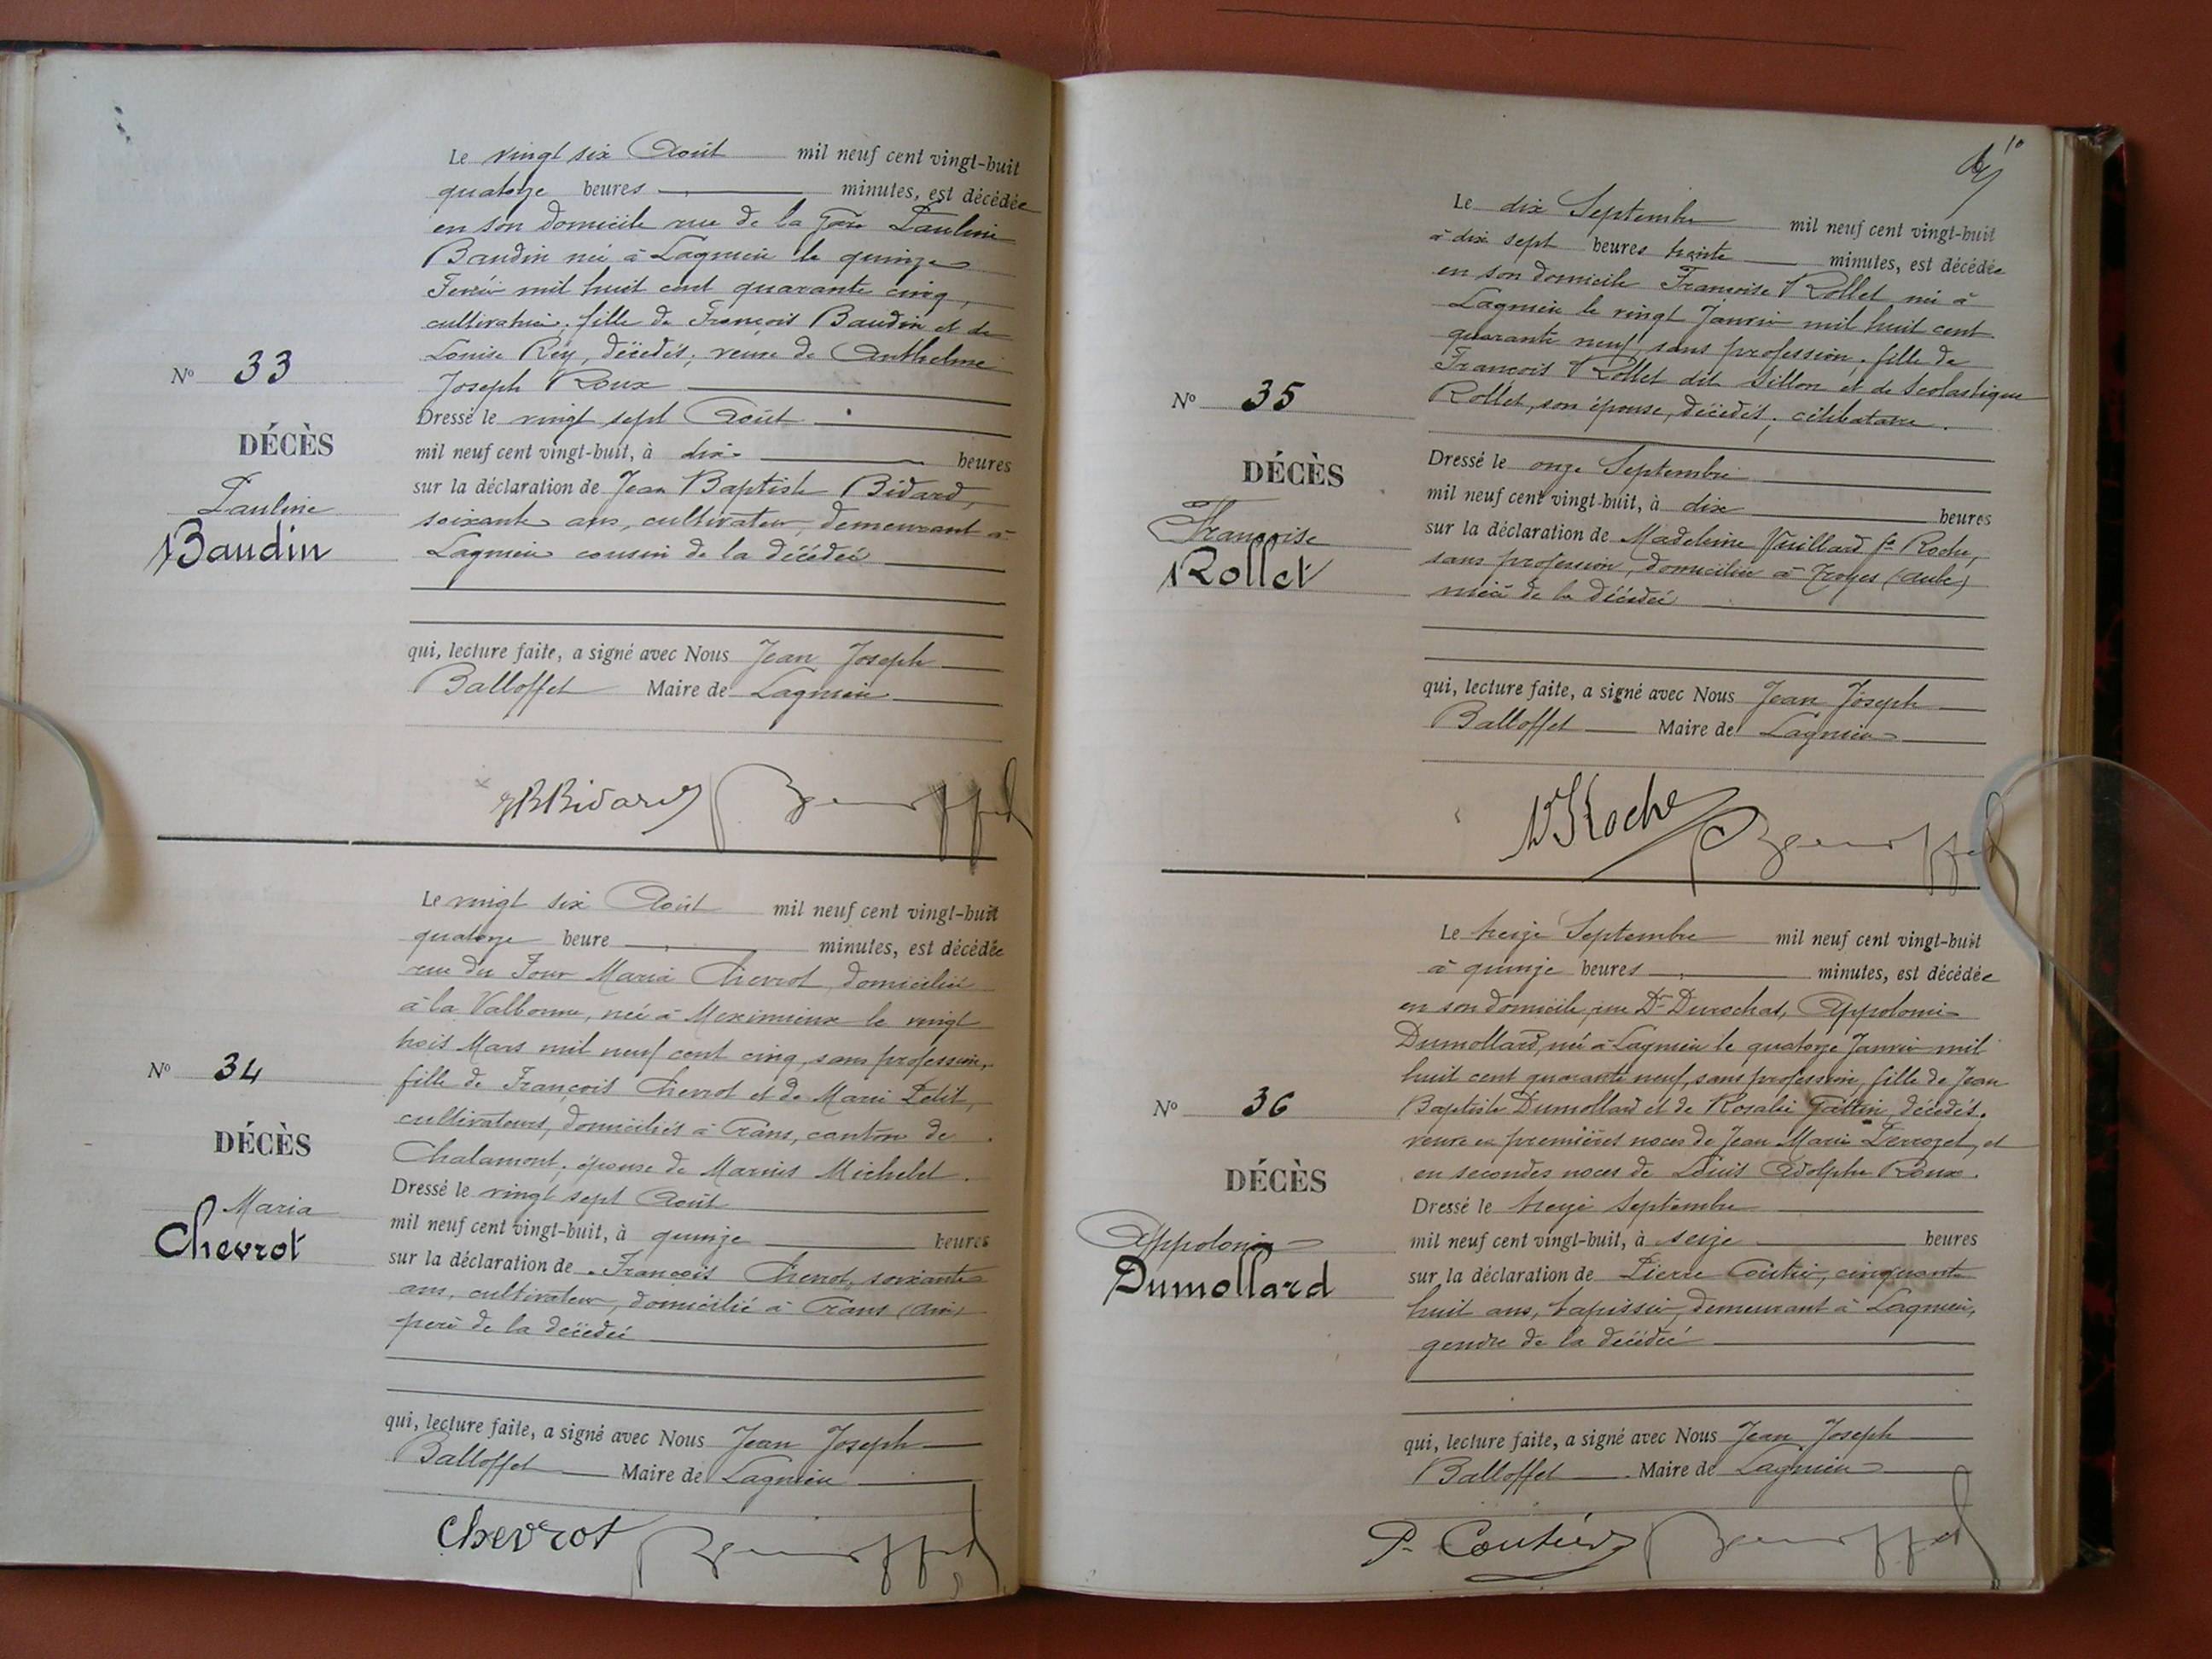 Le vingt six Août mil neuf cent vingt-huit
quatorze heures minutes, est décédée
en son domicile rue de la Gare Pauline
Baudin née à Lagnieu le quinze
Février mil huit cent quarante cinq,
cultivatrice, fille de François Baudin et de
Louise Rey, décédés, veuve de Anthelme
Joseph Roux
N° 33
DÉCÈS
Pauline
Baudin
Dressé le vingt sept Août
mil neuf cent vingt-huit, à dix heures
sur la déclaration de Jean Baptiste Bidard,
soixante ans, cultivateur, demeurant à
Lagnieu cousin de la décédée
qui, lecture faite, a signé avec Nous Jean Joseph
Balloffet Maire de Lagnieu
JB Bidard
Le vingt six Août mil neuf cent vingt-huit
quatorze heure minutes, est décédée
rue du Four Maria Chevrot, domiciliée
à la Valbonne, née à Meximieux le vingt
trois Mars mil neuf cent cinq, sans profession,
fille de François Chevrot et de Marie Petit,
cultivateurs, domiciliés à Crans, canton de
Chalamont, épouse de Marius Michelet.
N° 34
DÉCÈS
Maria
Chevrot
Dressé le vingt sept Août
mil neuf cent vingt-huit, à quinze heures
sur la déclaration de François Chevrot, soixante
ans, cultivateur, domicilié à Crans (Ain)
père de la décédée
qui, lecture faite, a signé avec Nous Jean Joseph
Balloffet Maire de Lagnieu
Chevrot
10
Le dix Septembre mil neuf cent vingt-huit
à dix sept heures trente minutes, est décédée
en son domicile Françoise Rollet née à
Lagnieu le vingt Janvier mil huit cent
quarante neuf sans profession, fille de
François Rollet dit Sillon et de Scolastique
Rollet, son épouse, décédés, célibataire.
N° 35
DÉCÈS
Françoise
Rollet
Dressé le onze Septembre
mil neuf cent vingt-huit, à dix heures
sur la déclaration de Madeleine Vuillard fe Roche,
sans profession, domiciliée à Troyes (Aube)
nièce de la décédée
qui, lecture faite, a signé avec Nous Jean Joseph
Balloffet Maire de Lagnieu
Roche
Le treize Septembre mil neuf cent vingt-huit
à quinze heures minutes, est décédée
en son domicile, rue Dr Durochat, Appolonie
Dumollard, née à Lagnieu le quatorze Janvier mil
huit cent quarante neuf, sans profession, fille de Jean
Baptiste Dumollard et de Rosalie Gattin, décédés.
veuve en premières noces de Jean Marie Perrozet, et
en secondes noces de Louis Adolphe Roux.
N° 36
DÉCÈS
Appolonie
Dumollard
Dressé le treize Septembre
mil neuf cent vingt-huit, à seize heures
sur la déclaration de Pierre Coutier, cinquante
huit ans, tapissier, demeurant à Lagnieu,
gendre de la décédée
qui, lecture faite, a signé avec Nous Jean Joseph
Balloffet Maire de Lagnieu
P. Coutier